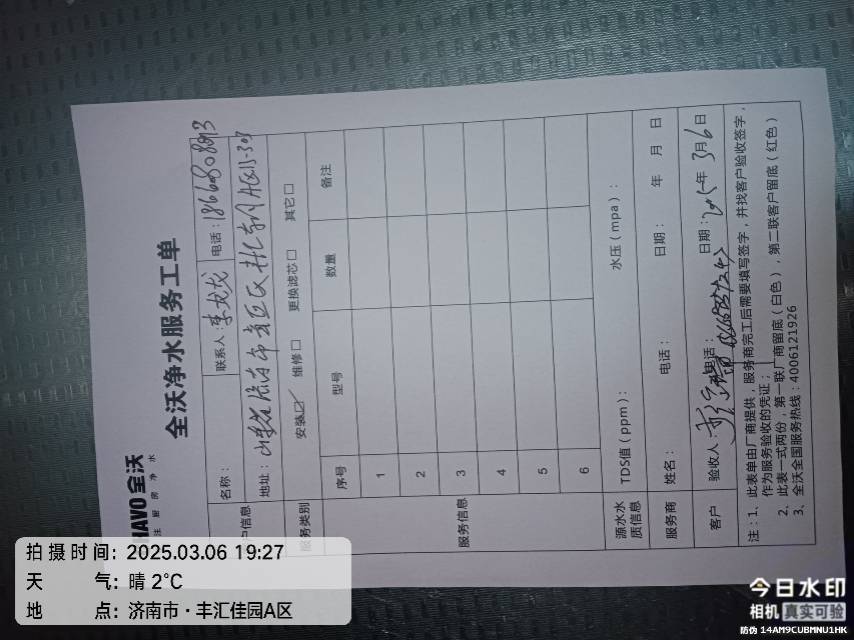 HAVO 全沃
注 厨 房 净 水
全沃净水服务工单
户信息
名称：
联系人：李龙龙
电话：
地址：
服务类别
安装☑ 维修□ 更换滤芯□ 其它□
服务信息
序号 型号 数量 备注
1
2
3
4
5
6
源水水质信息
TDS值（ppm）： 水压（mpa）：
服务商
姓名： 电话： 日期： 年 月 日
客户
验收人： 电话： 日期：2025年3月6日
注：1、此表单由厂商提供，服务商完工后需要填写签字，并找客户验收签字，
作为服务验收的凭证；
2、此表一式两份，第一联厂商留底（白色），第二联客户留底（红色）
3、全沃全国服务热线：4006121926
拍摄时间：2025.03.06 19:27
天 气：晴 2℃
地 点：济南市·丰汇佳园A区
今日水印
相机 真实可验
防伪 14AM9CUBMNU1HK